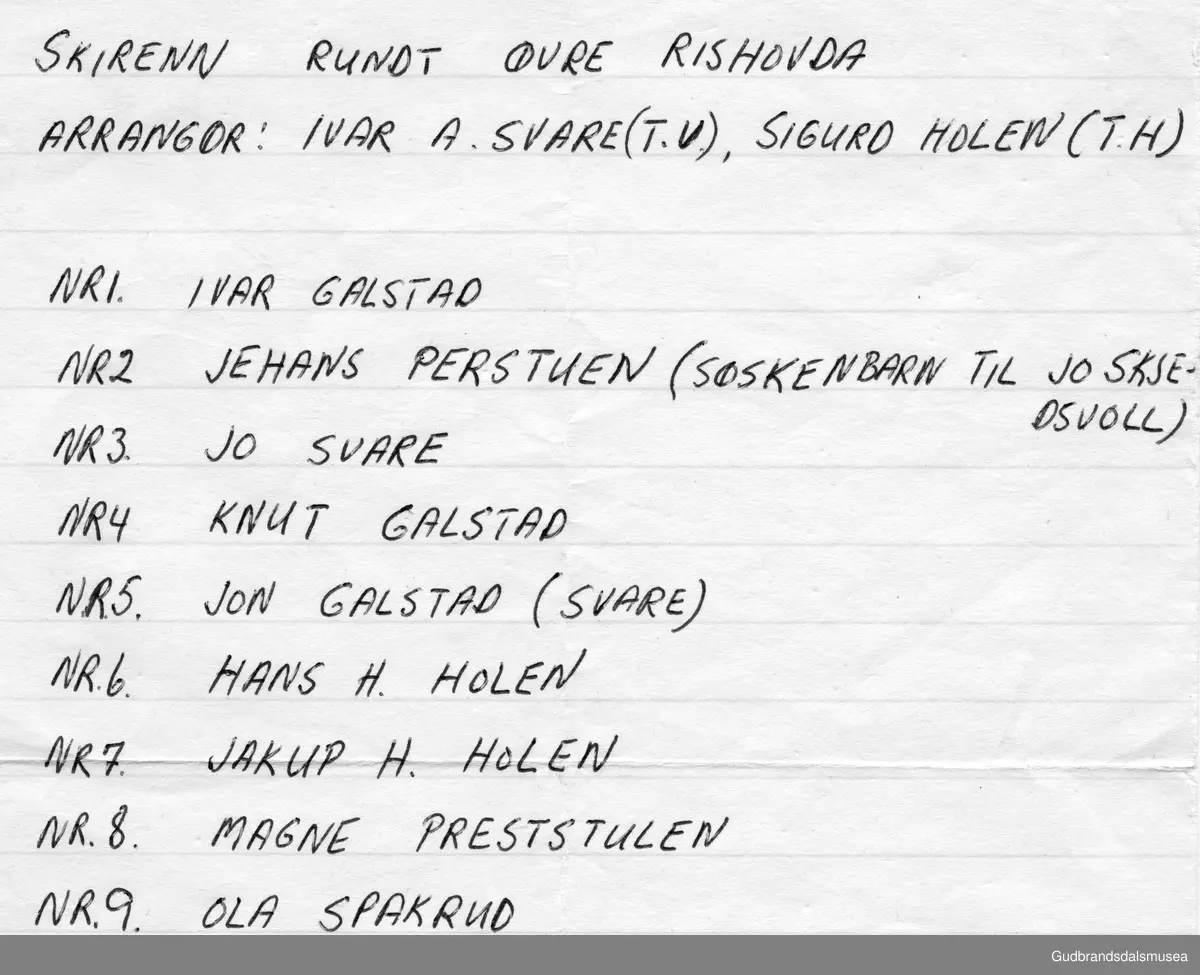 SKIRENN RUNDT ØVRE RISHOVDA
ARRANGØR: IVAR A. SVARE (T.V.), SIGURD HOLEN (T.H)
NR1. IVAR GALSTAD
NR2 JEHANS PERSTUEN (SØSKENBARN TIL JO SKJE-
DSVOLL)
NR3. JO SVARE
NR4 KNUT GALSTAD
NR5. JON GALSTAD (SVARE)
NR.6. HANS H. HOLEN
NR7. JAKUP H. HOLEN
NR.8. MAGNE PRESTSTULEN
NR.9. OLA SPAKRUD
Gudbrandsdalsmusea